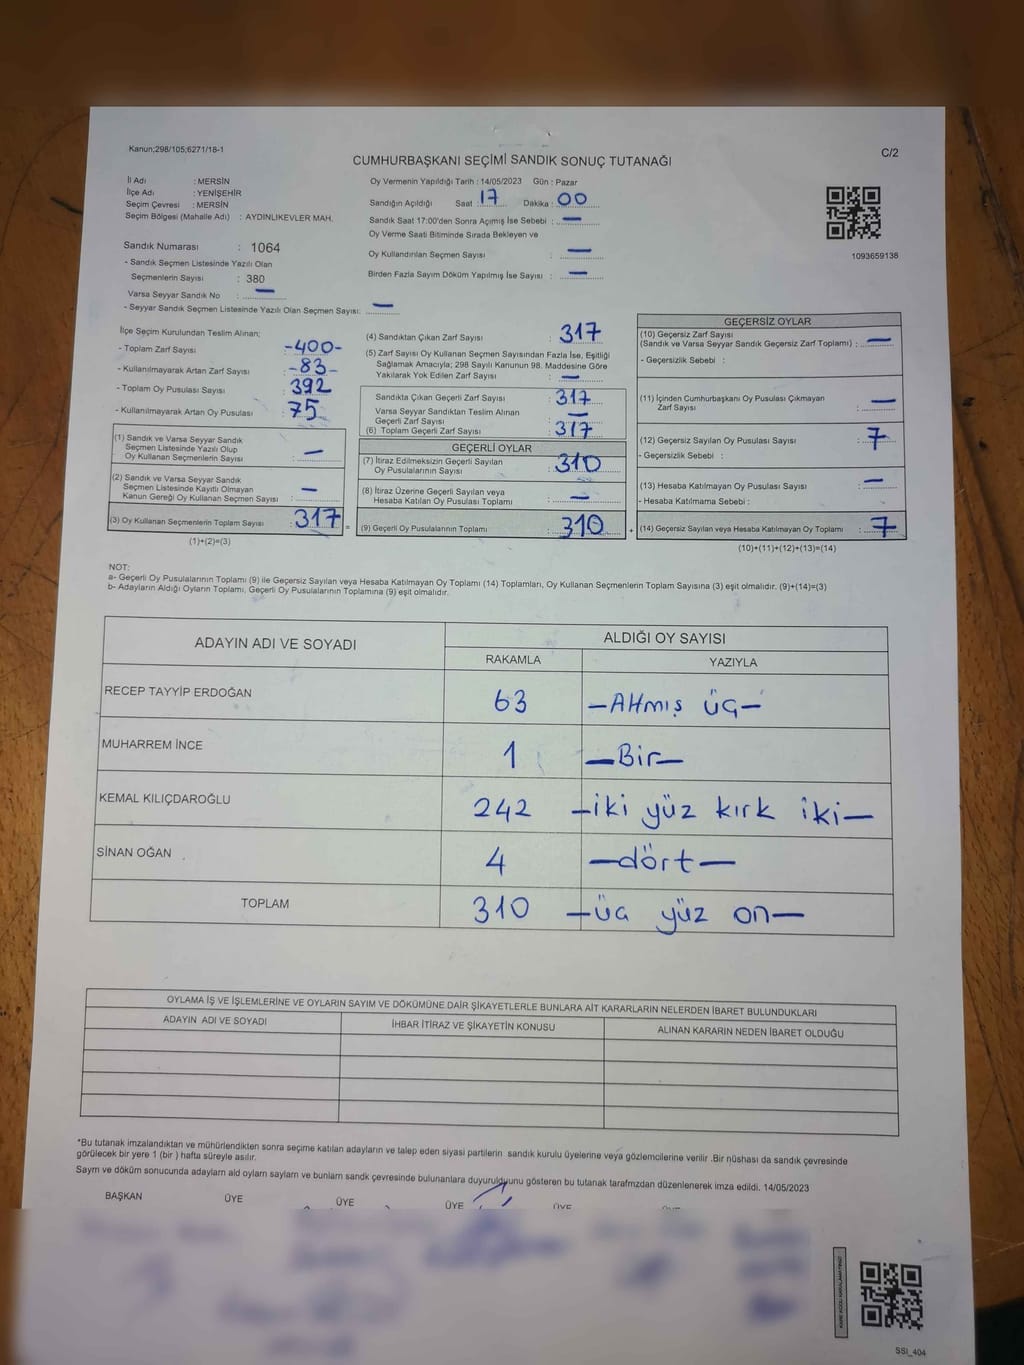 Kanun;298/105;6271/18-1
CUMHURBAŞKANI SEÇİMİ SANDIK SONUÇ TUTANAĞI
C/2
İl Adı : MERSİN
İlçe Adı : YENİŞEHİR
Seçim Çevresi : MERSİN
Seçim Bölgesi (Mahalle Adı) : AYDINLIKEVLER MAH.
Sandık Numarası : 1064
- Sandık Seçmen Listesinde Yazılı Olan
Seçmenlerin Sayısı : 380
Varsa Seyyar Sandık No : —
- Seyyar Sandık Seçmen Listesinde Yazılı Olan Seçmen Sayısı: —
Oy Vermenin Yapıldığı Tarih : 14/05/2023 Gün : Pazar
Sandığın Açıldığı Saat : 17 Dakika : 00
Sandık Saat 17:00'den Sonra Açımış İse Sebebi : —
Oy Verme Saati Bitiminde Sırada Bekleyen ve
Oy Kullandırılan Seçmen Sayısı : —
Birden Fazla Sayım Döküm Yapılmış İse Sayısı : —
1093659138
İlçe Seçim Kurulundan Teslim Alınan;
- Toplam Zarf Sayısı : -400-
- Kullanılmayarak Artan Zarf Sayısı : -83-
- Toplam Oy Pusulası Sayısı : 392
- Kullanılmayarak Artan Oy Pusulası : 75
(1) Sandık ve Varsa Seyyar Sandık
Seçmen Listesinde Yazılı Olup
Oy Kullanan Seçmenlerin Sayısı : —
(2) Sandık ve Varsa Seyyar Sandık
Seçmen Listesinde Kayıtlı Olmayan
Kanun Gereği Oy Kullanan Seçmen Sayısı : —
(3) Oy Kullanan Seçmenlerin Toplam Sayısı : 317 =
(1)+(2)=(3)
(4) Sandıktan Çıkan Zarf Sayısı : 317
(5) Zarf Sayısı Oy Kullanan Seçmen Sayısından Fazla İse, Eşitliği
Sağlamak Amacıyla; 298 Sayılı Kanunun 98. Maddesine Göre
Yakılarak Yok Edilen Zarf Sayısı : —
Sandıkta Çıkan Geçerli Zarf Sayısı : 317
Varsa Seyyar Sandıktan Teslim Alınan
Geçerli Zarf Sayısı : —
(6) Toplam Geçerli Zarf Sayısı : 317
GEÇERLİ OYLAR
(7) İtiraz Edilmeksizin Geçerli Sayılan
Oy Pusulalarının Sayısı : 310
(8) İtiraz Üzerine Geçerli Sayılan veya
Hesaba Katılan Oy Pusulası Toplamı : —
(9) Geçerli Oy Pusulalarının Toplamı : 310 +
GEÇERSİZ OYLAR
(10) Geçersiz Zarf Sayısı
(Sandık ve Varsa Seyyar Sandık Geçersiz Zarf Toplamı) : —
- Geçersizlik Sebebi :
(11) İçinden Cumhurbaşkanı Oy Pusulası Çıkmayan
Zarf Sayısı : —
(12) Geçersiz Sayılan Oy Pusulası Sayısı : 7
- Geçersizlik Sebebi :
(13) Hesaba Katılmayan Oy Pusulası Sayısı : —
- Hesaba Katılmama Sebebi :
(14) Geçersiz Sayılan veya Hesaba Katılmayan Oy Toplamı : 7
(10)+(11)+(12)+(13)=(14)
NOT:
a- Geçerli Oy Pusulalarının Toplamı (9) ile Geçersiz Sayılan veya Hesaba Katılmayan Oy Toplamı (14) Toplamları, Oy Kullanan Seçmenlerin Toplam Sayısına (3) eşit olmalıdır. (9)+(14)=(3)
b- Adayların Aldığı Oyların Toplamı, Geçerli Oy Pusulalarının Toplamına (9) eşit olmalıdır.
ADAYIN ADI VE SOYADI ALDIĞI OY SAYISI
RAKAMLA YAZIYLA
RECEP TAYYİP ERDOĞAN 63 —Altmış üç—
MUHARREM İNCE 1 —Bir—
KEMAL KILIÇDAROĞLU 242 —iki yüz kırk iki—
SİNAN OĞAN 4 —dört—
TOPLAM 310 —üç yüz on—
OYLAMA İŞ VE İŞLEMLERİNE VE OYLARIN SAYIM VE DÖKÜMÜNE DAİR ŞİKAYETLERLE BUNLARA AİT KARARLARIN NELERDEN İBARET BULUNDUKLARI
ADAYIN ADI VE SOYADI İHBAR İTİRAZ VE ŞİKAYETİN KONUSU ALINAN KARARIN NEDEN İBARET OLDUĞU
*Bu tutanak imzalandıktan ve mühürlendikten sonra seçime katılan adayların ve talep eden siyasi partilerin sandık kurulu üyelerine veya gözlemcilerine verilir .Bir nüshası da sandık çevresinde
görülecek bir yere 1 (bir ) hafta süreyle asılır.
Sayım ve döküm sonucunda adayların ald oyların sayların ve bunların sandk çevresinde bulunanlara duyurulduğunu gösteren bu tutanak tarafmzdan düzenlenerek imza edildi. 14/05/2023
BAŞKAN ÜYE ÜYE ÜYE ÜYE
SSI_404